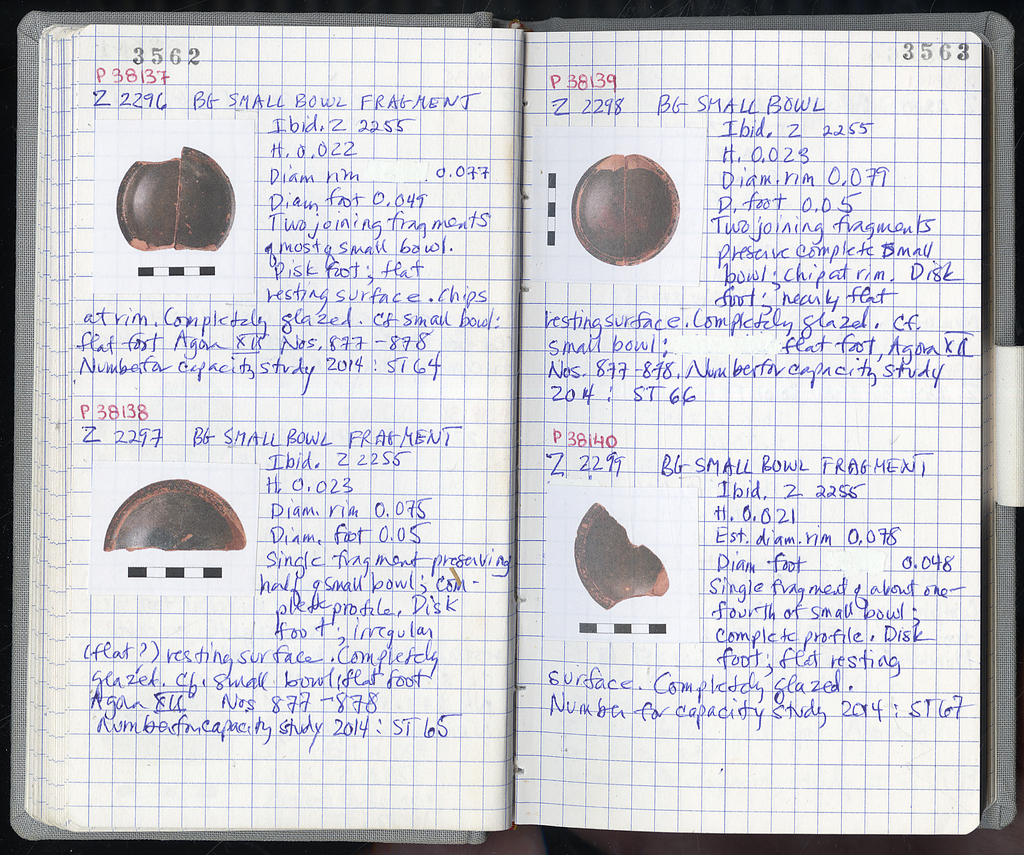 3562
P 38137
Z 2296 BG SMALL BOWL FRAGMENT
Ibid. Z 2255
H. 0.022
Diam rim 0.077
Diam foot 0.049
Two joining fragments
of most of small bowl.
Disk foot; flat
resting surface. Chips
at rim. Completely glazed. Cf small bowl:
flat foot Agora XII Nos. 877-878
Number for capacity study 2014: ST 64
P 38138
Z 2297 BG SMALL BOWL FRAGMENT
Ibid. Z 2255
H. 0.023
Diam. rim 0.075
Diam. foot 0.05
Single fragment preserving
half of small bowl; com-
plete profile. Disk
foot; irregular
(flat?) resting surface. Completely
glazed. Cf. small bowl: flat foot
Agora XII Nos 877-878
Number for capacity study 2014: ST 65
3563
P 38139
Z 2298 BG SMALL BOWL
Ibid. Z 2255
H. 0.023
Diam. rim 0.079
D. foot 0.05
Two joining fragments
preserve complete small
bowl; chip at rim. Disk
foot; nearly flat
resting surface. Completely glazed. Cf.
small bowl: flat foot, Agora XII
Nos. 877-878. Number for capacity study
2014: ST 66
P 38140
Z 2299 BG SMALL BOWL FRAGMENT
Ibid. Z 2255
H. 0.021
Est. diam. rim 0.078
Diam foot 0.048
Single fragment of about one-
fourth of small bowl;
complete profile. Disk
foot; flat resting
surface. Completely glazed.
Number for capacity study 2014: ST 67